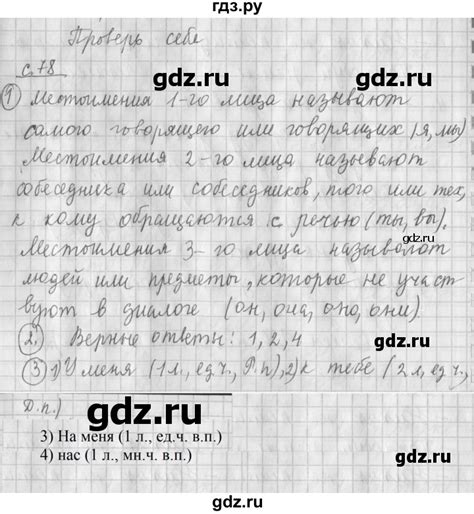 гдз.ру
Проверь себя
с. 78
gdz.ru
1 Местоимения 1-го лица называют
самого говорящего или говорящих (я, мы)
gdz.ru
Местоимения 2-го лица называют
собеседника или собеседников, того или тех,
к кому обращаются с речью (ты, вы).
gdz.ru
Местоимения 3-го лица называют
людей или предметы, которые не участ
вуют в диалоге (он, она, оно, они)
gdz.ru
2. Верные ответы: 1, 2, 4
3 1) У меня (1 л., ед.ч., Р.п), 2) к тебе (2 л, ед.ч.,
Д.п.)
gdz.ru
3) На меня (1 л., ед.ч. в.п.)
4) нас (1 л., мн.ч. в.п.)
gdz.ru